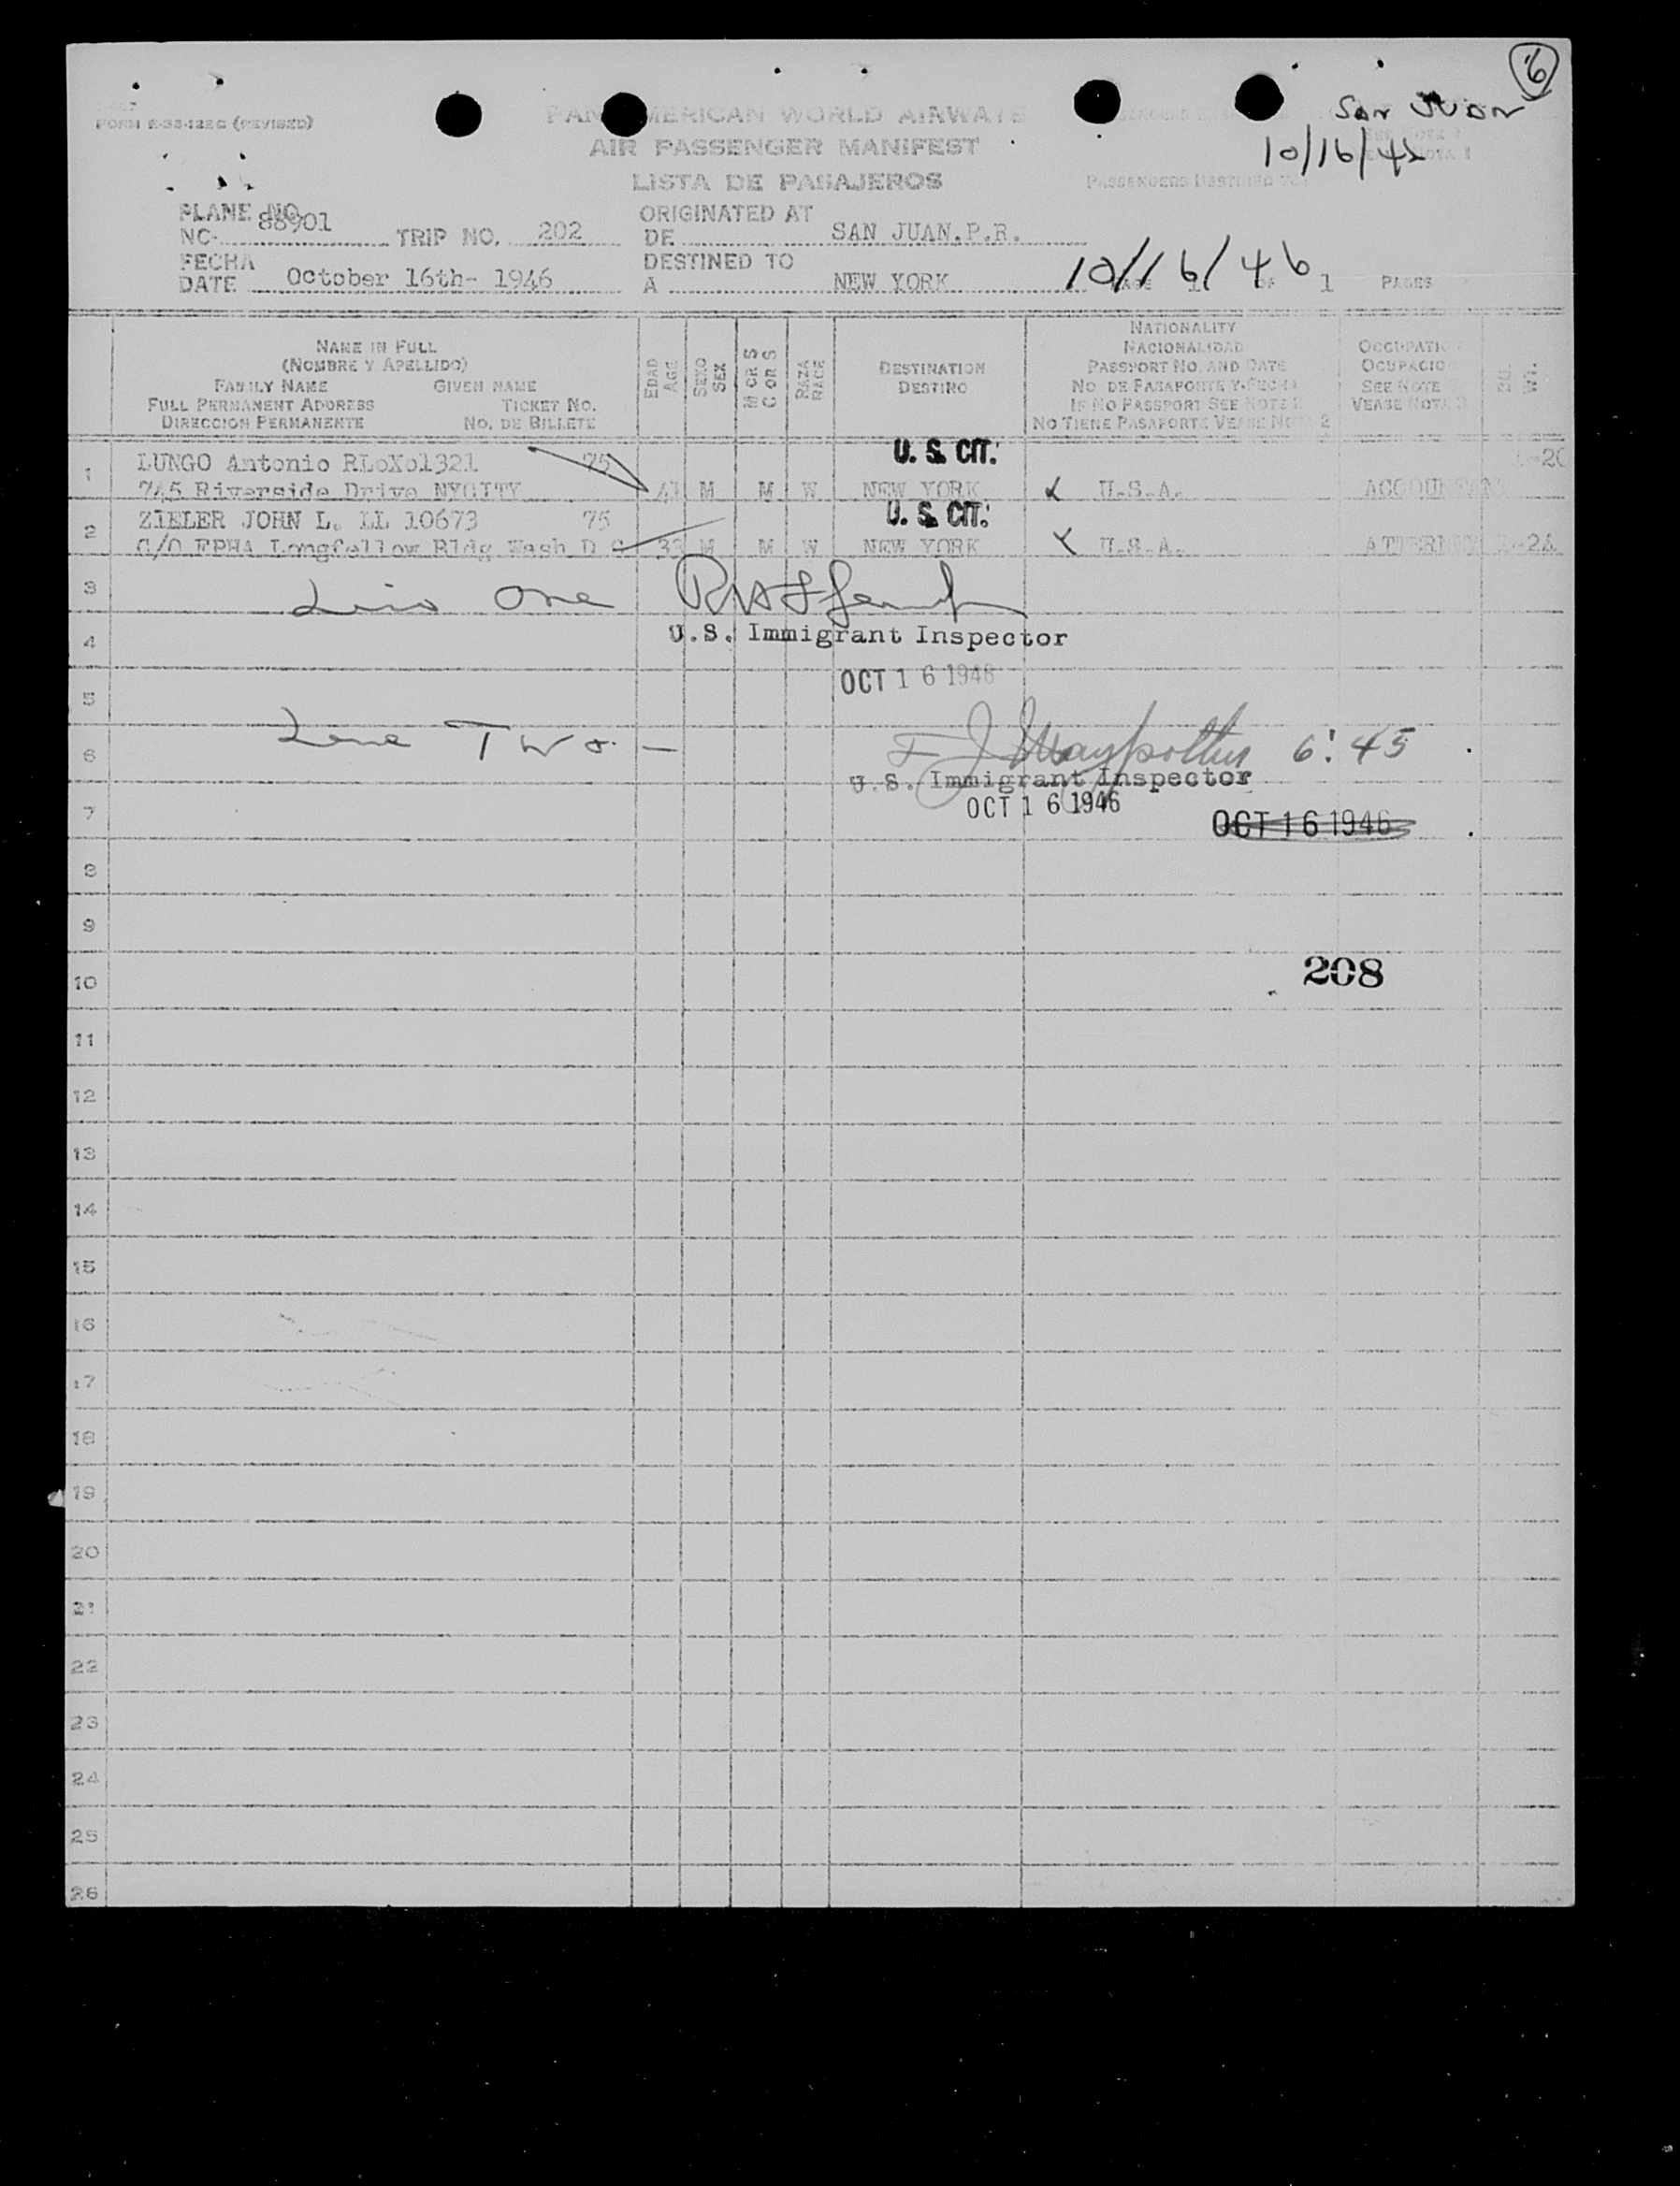 6
San Juan
10/16/42
FORM (REVISED)
PAN AMERICAN WORLD AIRWAYS
AIR PASSENGER MANIFEST
LISTA DE PASAJEROS
PASSENGERS DESTINED
PLANE NO.
NO. 88901 TRIP NO. 202
ORIGINATED AT
DE SAN JUAN.P.R.
FECHA
DATE October 16th- 1946
DESTINED TO
A NEW YORK
10/16/46
1 PAGES
NAME IN FULL
(NOMBRE Y APELLIDO)
FAMILY NAME GIVEN NAME
FULL PERMANENT ADDRESS TICKET NO.
DIRECCION PERMANENTE NO. DE BILLETE
EDAD
AGE
SEXO
SEX
M OR S
C OR S
RAZA
RACE
DESTINATION
DESTINO
NATIONALITY
NACIONALIDAD
PASSPORT NO. AND DATE
NO. DE PASAPORTE Y FECHA
IF NO PASSPORT SEE NOTE
NO TIENE PASAPORTE VEASE NOTA 2
OCCUPATIO
OCUPACIO
SEE NOTE
VEASE NOTA
WT.
U. S. CIT.
1 LUNGO Antonio RLoXo1321 75
745 Riverside Drive NYCITY M M W NEW YORK U.S.A. ACCOUNTANT
U. S. CIT.
2 ZIELER JOHN L. LL 10673 75
C/O FPHA Longfellow Bldg Wash D C M M W NEW YORK U.S.A.
3 Line One
4 U.S. Immigrant Inspector
5 OCT 16 1946
6 Line Two. - 6:45
U.S. Immigrant Inspector
7 OCT 16 1946
OCT 16 1946
8
9
10 208
11
12
13
14
15
16
17
18
19
20
21
22
23
24
25
26